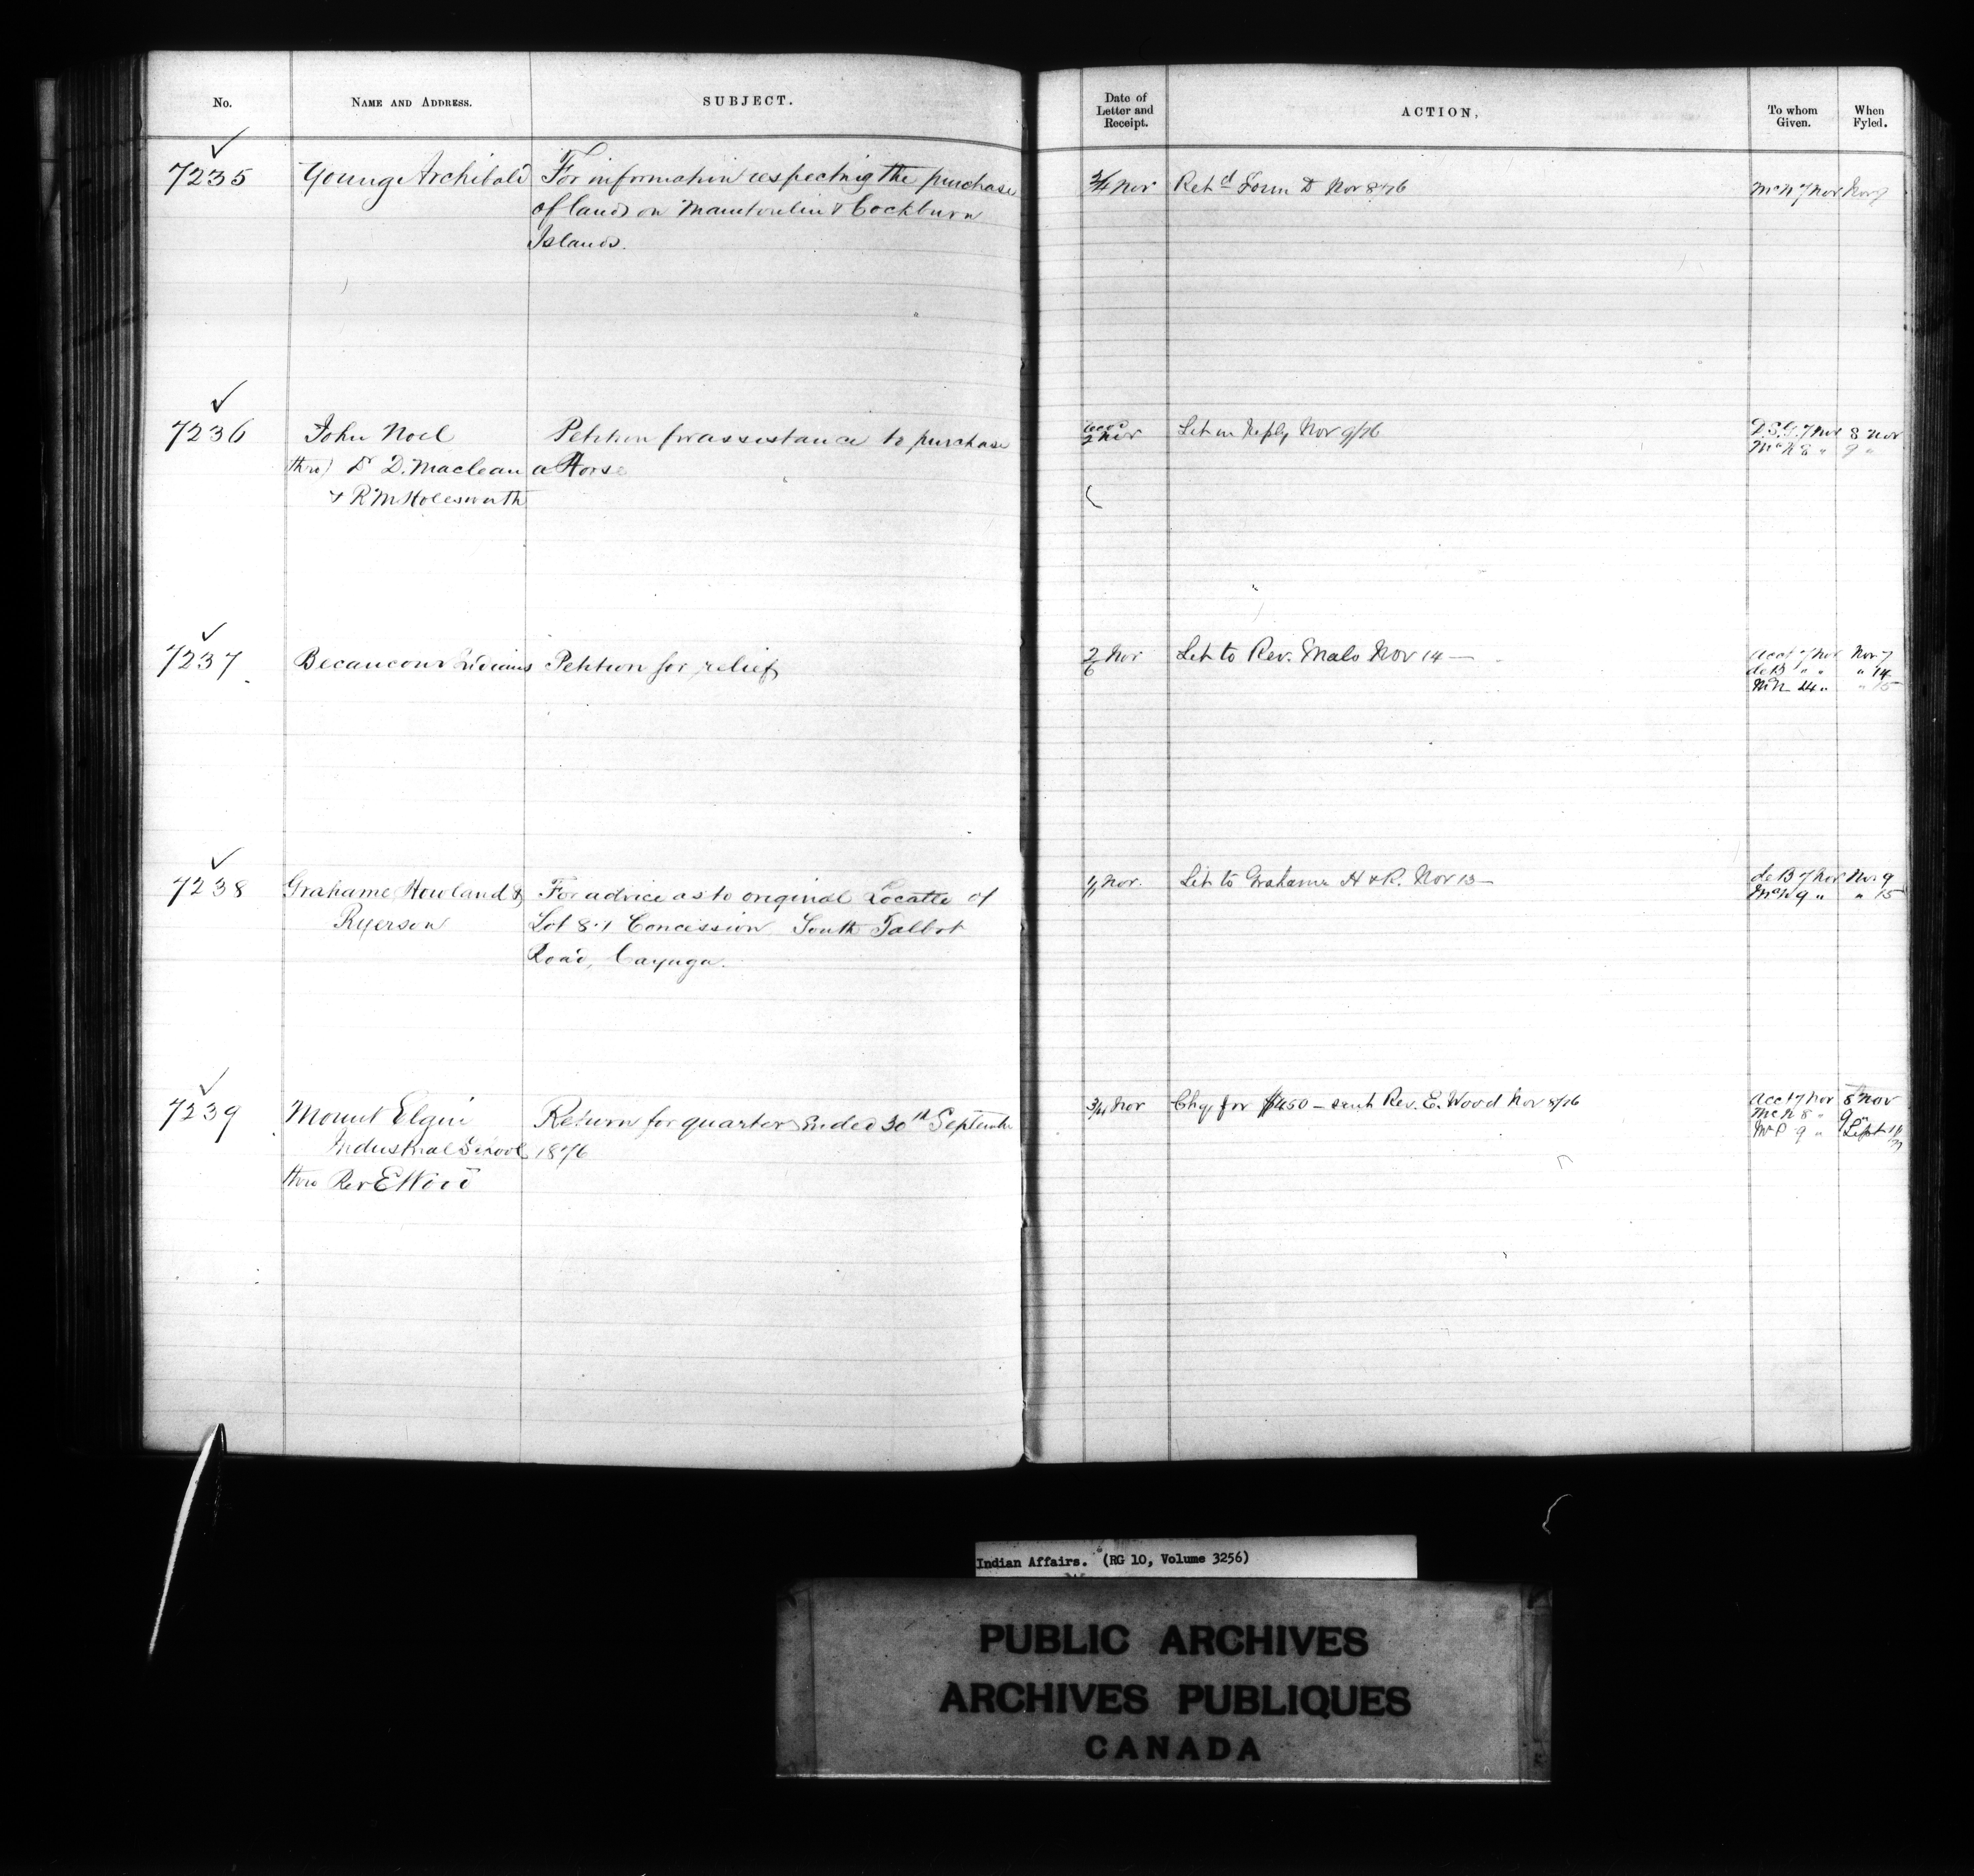 No.
NAME AND ADDRESS.
SUBJECT.
Date of
Letter and
Receipt.
ACTION,
To whom
Given.
When
Fyled.
7235
Young Archibald
For information respecting the purchase
of lands on Manitoulin & Cockburn
Islands.
Nov
Retd Form D Nov 8/76
McN 7 Nov
Nov 7
7236
John Noel
thro' Dr D. Maclean
& R M Holesworth
Petition for assistance to purchase
a Horse
2 Nov
Let in Reply Nov 9/76
D.S.G. 7 Nov
8 Nov
McN 8 "
9 "
7237
Becancour Indians
Petition for relief
2/6 Nov
Let to Rev. Malo Nov 14 —
Acct 7 Nov
Nov 7
de B " "
" 14
McN 14 "
" 15
7238
Grahame Howland &
Ryerson
For advice as to original Locatee of
Lot 8.1 Concession South Talbot
Road, Cayuga.
Nov.
Let to Grahame H & R. Nov 13 —
de B 7 Nov
Nov 9
McN 9 "
" 15
7239
Mount Elgin
Industrial School
thro Rev E Wood
Return for quarter Ended 30th September
1876
3/4 Nov
Chq. for $450 — sent Rev. E. Wood Nov 8/76
Acct 7 Nov
8 Nov
McN 8 "
9 "
McP 9 "
Sept
Indian Affairs. (RG 10, Volume 3256)
PUBLIC ARCHIVES
ARCHIVES PUBLIQUES
CANADA